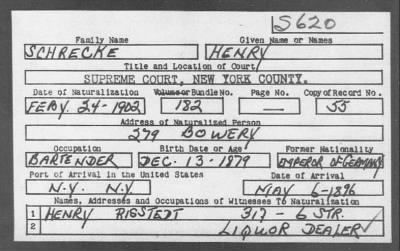 S620
Family Name Given Name or Names
SCHRECKE HENRY
Title and Location of Court
SUPREME COURT, NEW YORK COUNTY.
Date of Naturalization Volume or Bundle No. Page No. Copy of Record No.
FEBY. 24-1902 182 — 55
Address of Naturalized Person
279 BOWERY
Occupation Birth Date or Age Former Nationality
BARTENDER DEC. 13-1879 EMPEROR OF GERMANY
Port of Arrival in the United States Date of Arrival
N.Y. N.Y. MAY 6-1896
Names, Addresses and Occupations of Witnesses To Naturalization
1 HENRY RIGSTEDT 317-6 STR.
2 LIQUOR DEALER